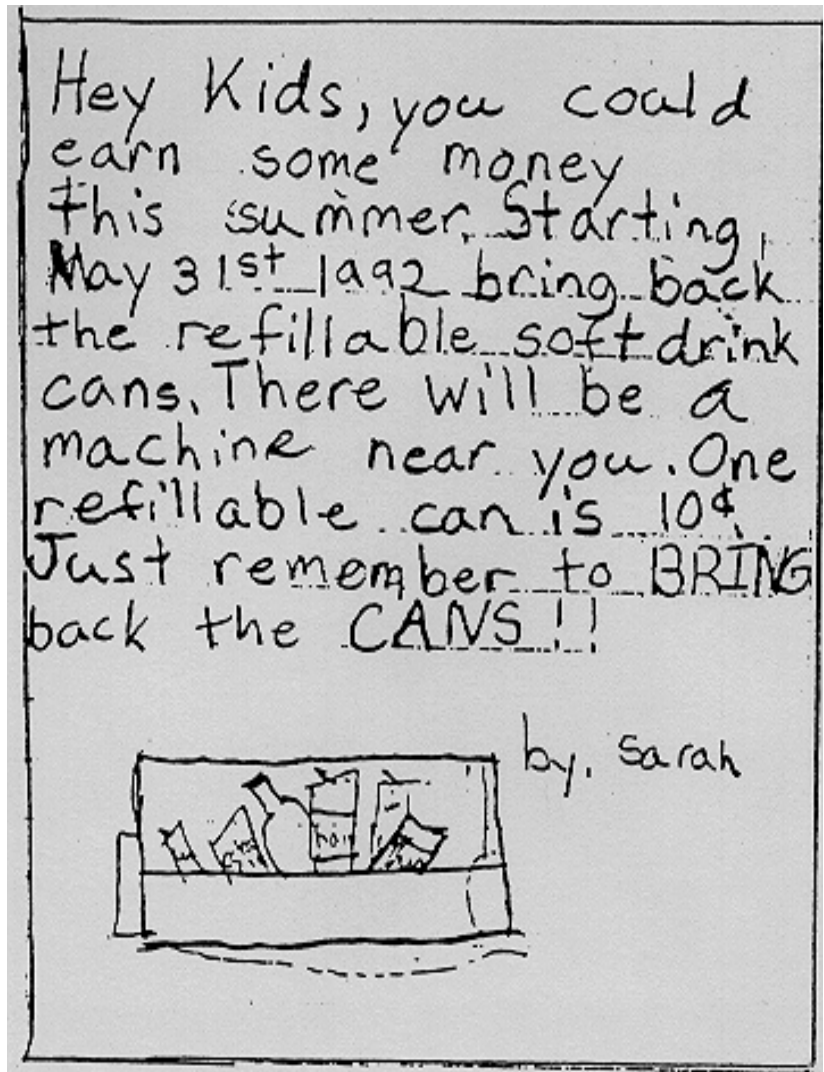 Hey Kids, you could
earn some money
this summer. Starting,
May 31st 1992 bring back
the refillable soft drink
cans. There will be a
machine near you. One
refillable can is 10¢.
Just remember to BRING
back the CANS!!
by, Sarah